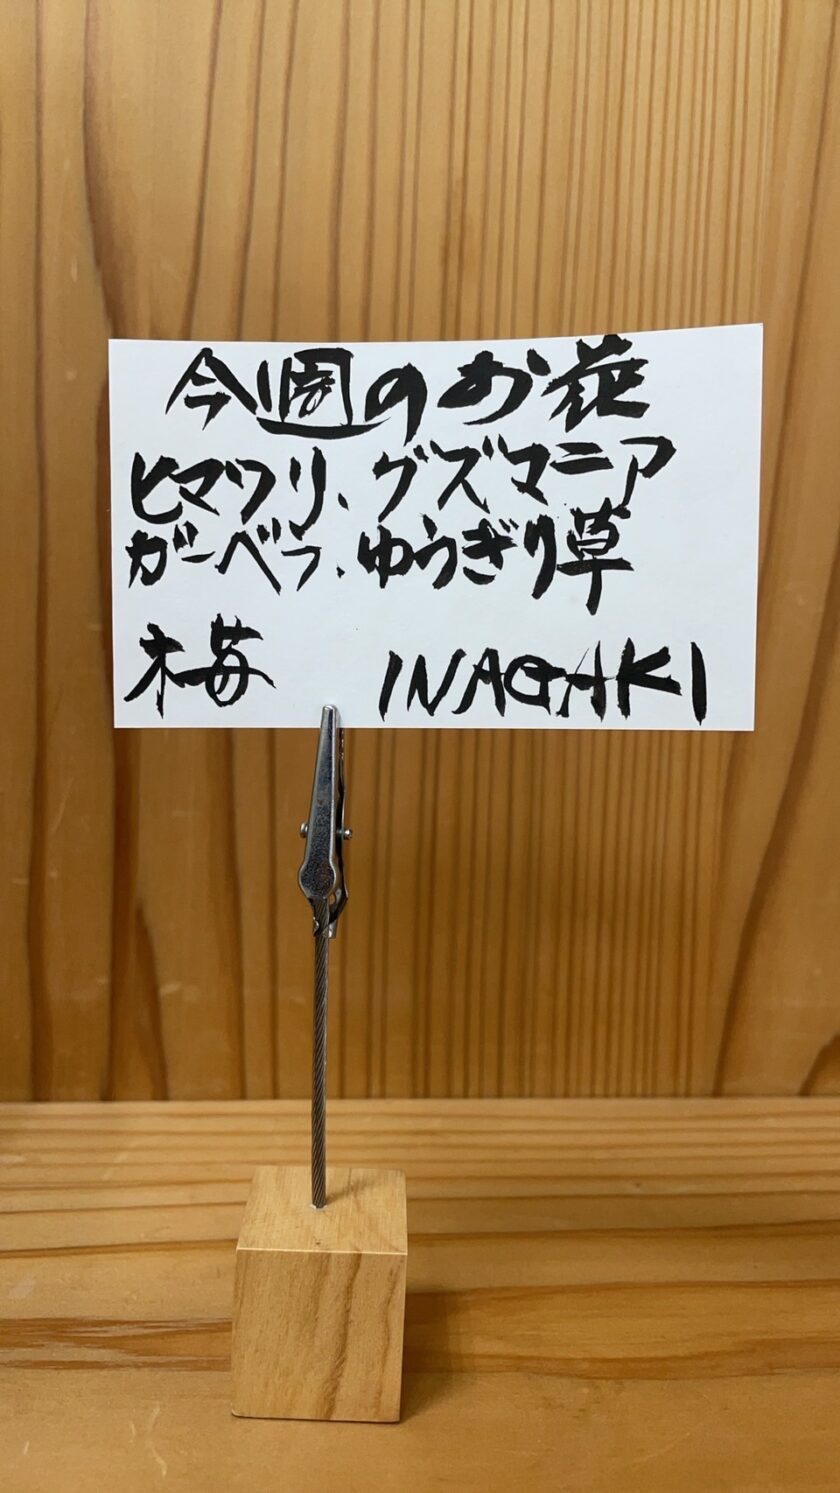 今週のお花
ヒマワリ、グズマニア
ガーベラ、ゆうぎり草
木苺 INAGAKI